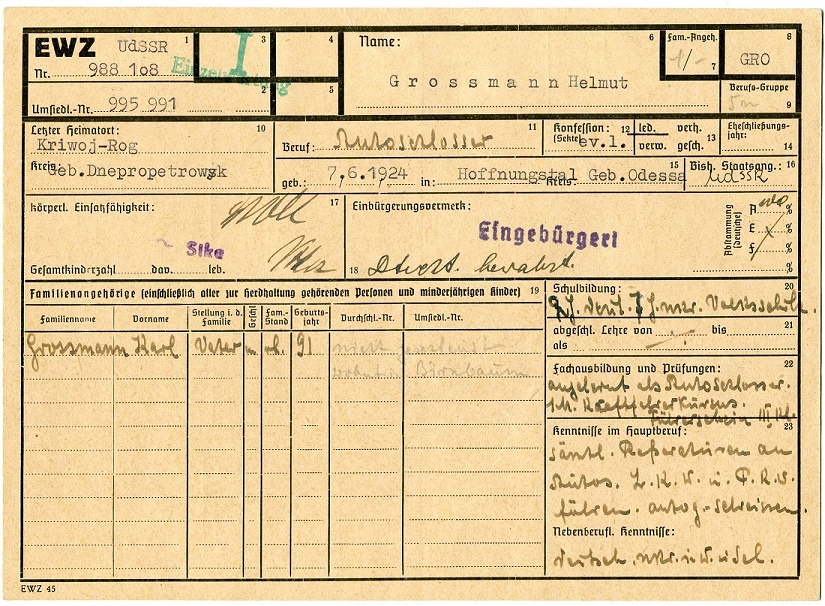 EWZ UdSSR 1
Nr. 988 1o8
2
Umsiedl.-Nr. 995 991
I 3
4
5
Name: 6
Grossmann Helmut
Fam.-Angeh.
1/- 7
8
GRO
Berufs-Gruppe
9
Letzter Heimatort: 10
Kriwoj-Rog
Kreis:
Geb.Dnepropetrowsk
Beruf: Autoschlosser 11
Konfession: 12
(Sekte) ev.l.
led. verh.
verw. gesch. 13
Eheschließungs-
jahr: 14
geb.: 7.6.1924 in: Hoffnungstal Geb.Odessa 15
Kreis:
Bish. Staatsang.: 16
UdSSR
körperl. Einsatzfähigkeit: 17
voll
Sike
Gesamtkinderzahl dav. leb.
Einbürgerungsvermerk:
Eingebürgert
18
Abstammung
(deutsche)
A %
E %
F %
%
Familienangehörige (einschließlich aller zur Herdhaltung gehörenden Personen und minderjährigen Kinder) 19
Familienname Vorname Stellung i. d. Familie Geschl. Fam.-Stand Geburts-jahr Durchschl.-Nr. Umsiedl.-Nr.
Grossmann Karl Vater m. vh. 91 nicht
wohnt in Birnbaum
Schulbildung: 20
J. deut. 7 J. ukr. Volksschule
abgeschl. Lehre von bis 21
als
Fachausbildung und Prüfungen: 22
angelernt als Autoschlosser.
Kraftfahrerkursus.
Führerschein III Kl.
Kenntnisse im Hauptberuf: 23
sämtl. Reparaturen an
Autos. L.K.W. u. P.K.W.
führen. autog. schweissen.
Nebenberufl. Kenntnisse:
deutsch. ukr. i. W. u.
EWZ 45